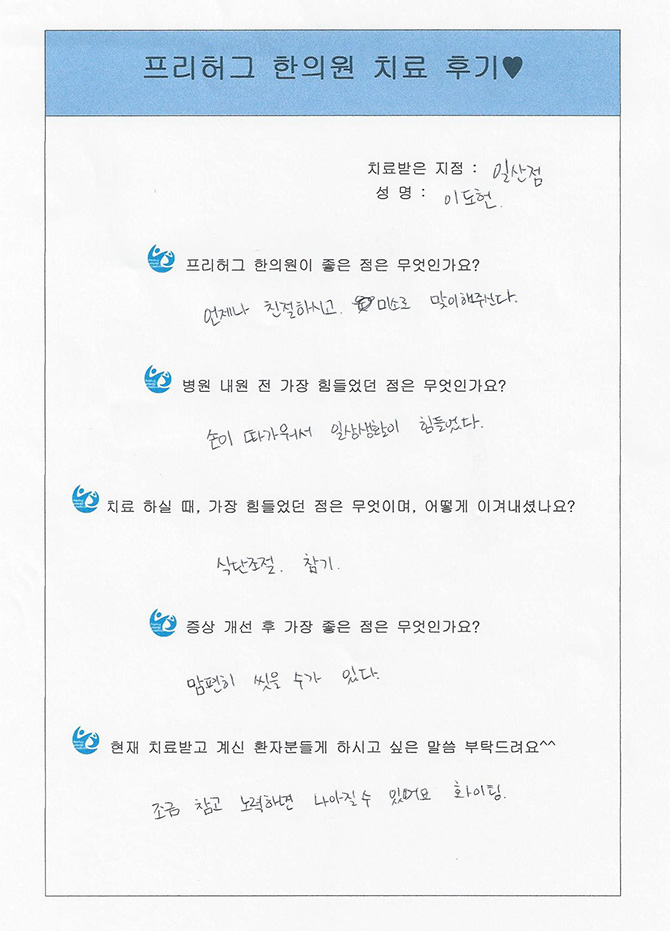 프리허그 한의원 치료 후기♥
치료받은 지점 : 일산점
성 명 : 이도헌.
프리허그 한의원이 좋은 점은 무엇인가요?
언제나 친절하시고. 미소로 맞이해주신다.
병원 내원 전 가장 힘들었던 점은 무엇인가요?
손이 따가워서 일상생활이 힘들었다.
치료 하실 때, 가장 힘들었던 점은 무엇이며, 어떻게 이겨내셨나요?
식단조절. 참기.
증상 개선 후 가장 좋은 점은 무엇인가요?
맘편히 씻을 수가 있다.
현재 치료받고 계신 환자분들게 하시고 싶은 말씀 부탁드려요^^
조금 참고 노력하면 나아질 수 있어요 화이팅.